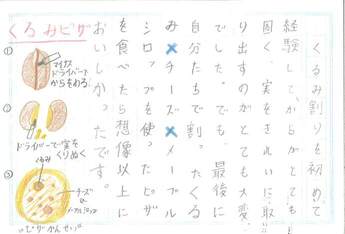 くるみピザ
①
マイナス
ドライバーで
からをわる
②
ドライバーで実を
くりぬく
③
くるみ
チーズ
&
メープルシロップ
ピザかんせい
くるみ割りを初めて
経験して、からがとても
固く、実をきれいに取
り出すのがとても大変
でした。最後に
自分たちで割ったくる
み×チーズ×メープル
シロップを使ったピザ
を食べたら想像以上に
おいしかったです。